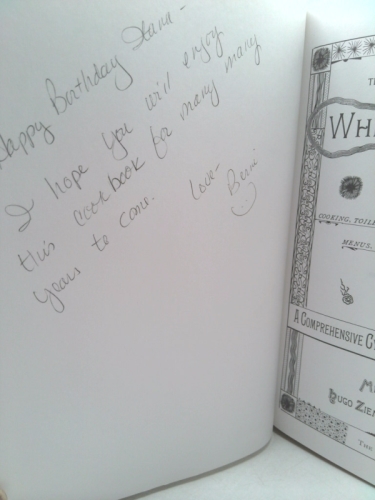 Happy Birthday
I hope you will enjoy
this cookbook for many many
years to come.
Love-
TH
WH
COOKING, TOILE
MENUS,
A COMPREHENSIVE CY
M
HUGO ZIEM
THE